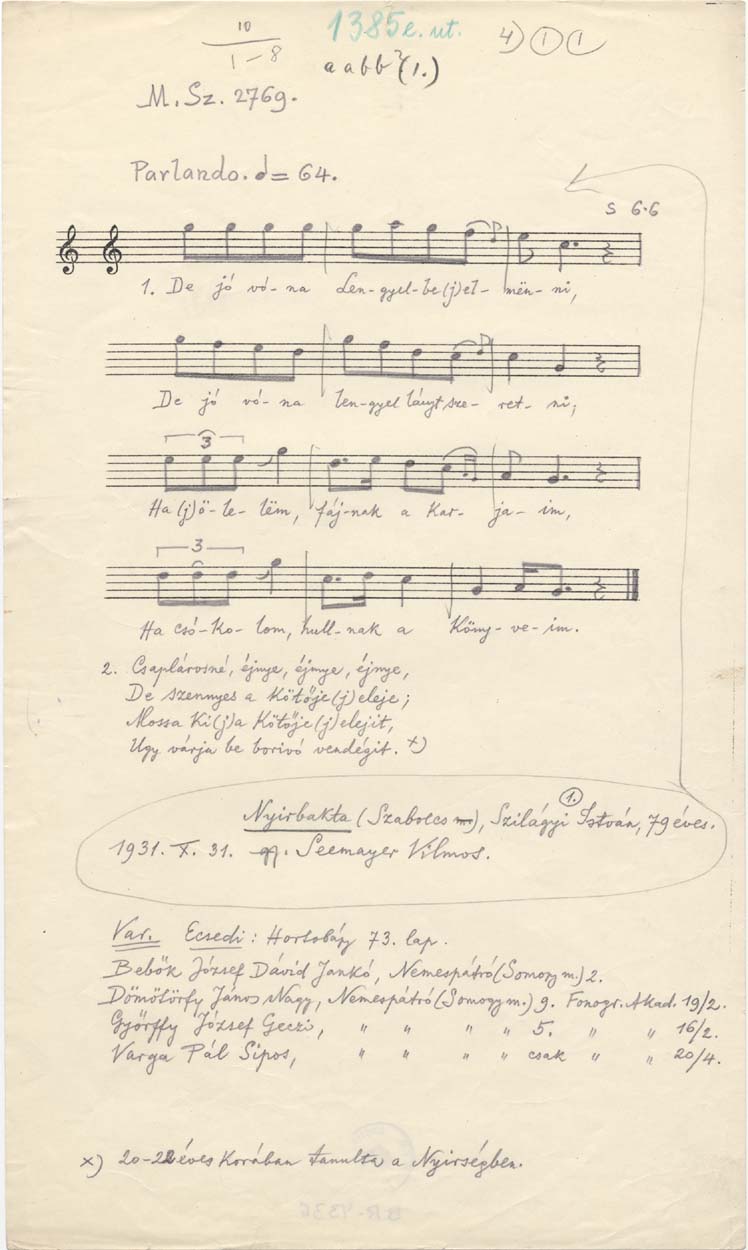 10
1–8
1385 e. ut.
4) 1 1
a a b b (1.)
M. Sz. 2769.
Parlando. = 64.
S 6·6
1. De jó vó-na Len-gyel-be(j)el-mën-ni,
De jó vó-na len-gyel lányt sze-ret-ni;
3
Ha(j)ö-le-lëm, fáj-nak a kar-ja-im,
3
Ha csó-ko-lom, hull-nak a köny-ve-im.
2. Csaplárosné, éjnye, éjnye, éjnye,
De szennyes a kötője(j)eleje;
Mossa ki(j)a kötője(j)elejit,
Ugy várja be borivó vendégit. x)
1.
Nyirbakta (Szabolcs m), Szilágyi István, 79 éves.
1931. X. 31. gy. Seemayer Vilmos.
Var. Ecsedi: Hortobágy 73. lap.
Bebők József Dávid Jankó, Nemespátró (Somogy m.) 2.
Dömötörfy János Nagy, Nemespátró (Somogy m.) 9. Fonogr. Akad. 19/2.
Györffy József Geczi, " " " " 5. " " 16/2.
Varga Pál Sipos, " " " " csak " " 20/4.
x) 20-22 éves korában tanulta a Nyirségben.